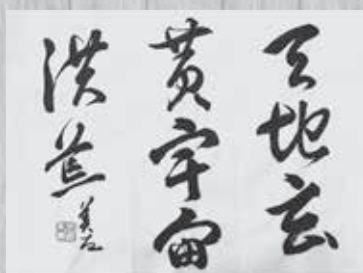 天地玄
黄宇宙
洪荒